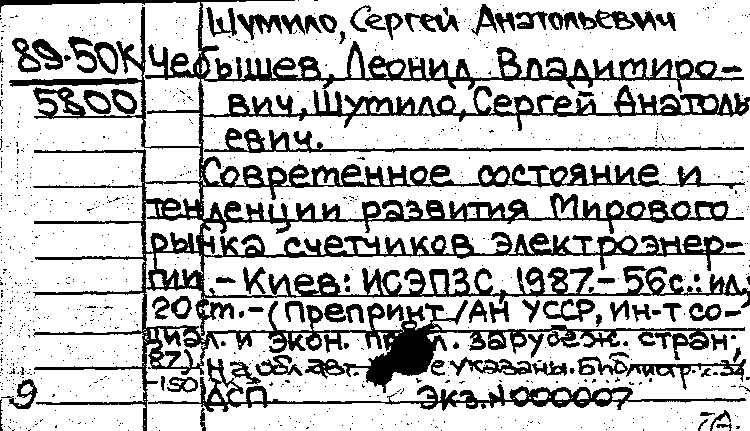 Шумило, Сергей Анатольевич
89-50К Чебышев, Леонид Владимиро-
5800 вич, Шумило, Сергей Анатоль
евич.
Современное состояние и
тенденции развития Мирового
рынка счетчиков электроэнер-
гии.- Киев: ИСЭПЗС, 1987.- 56с.: ил.;
20 ст.-(Препринт/АН УССР, Ин-т со-
циал. и экон. пр л. зарубеж. стран;
87). На обл. авт. е указаны. Библиогр.: с. 54
-150
9 ДСП Экз.N000007